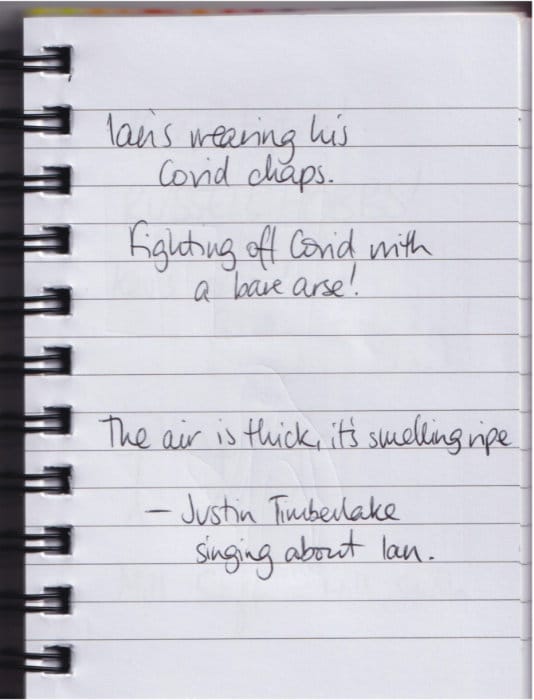 Ian's wearing his
Covid chaps.
Fighting off Covid with
a bare arse!
The air is thick, it's smelling ripe
— Justin Timberlake
singing about Ian.